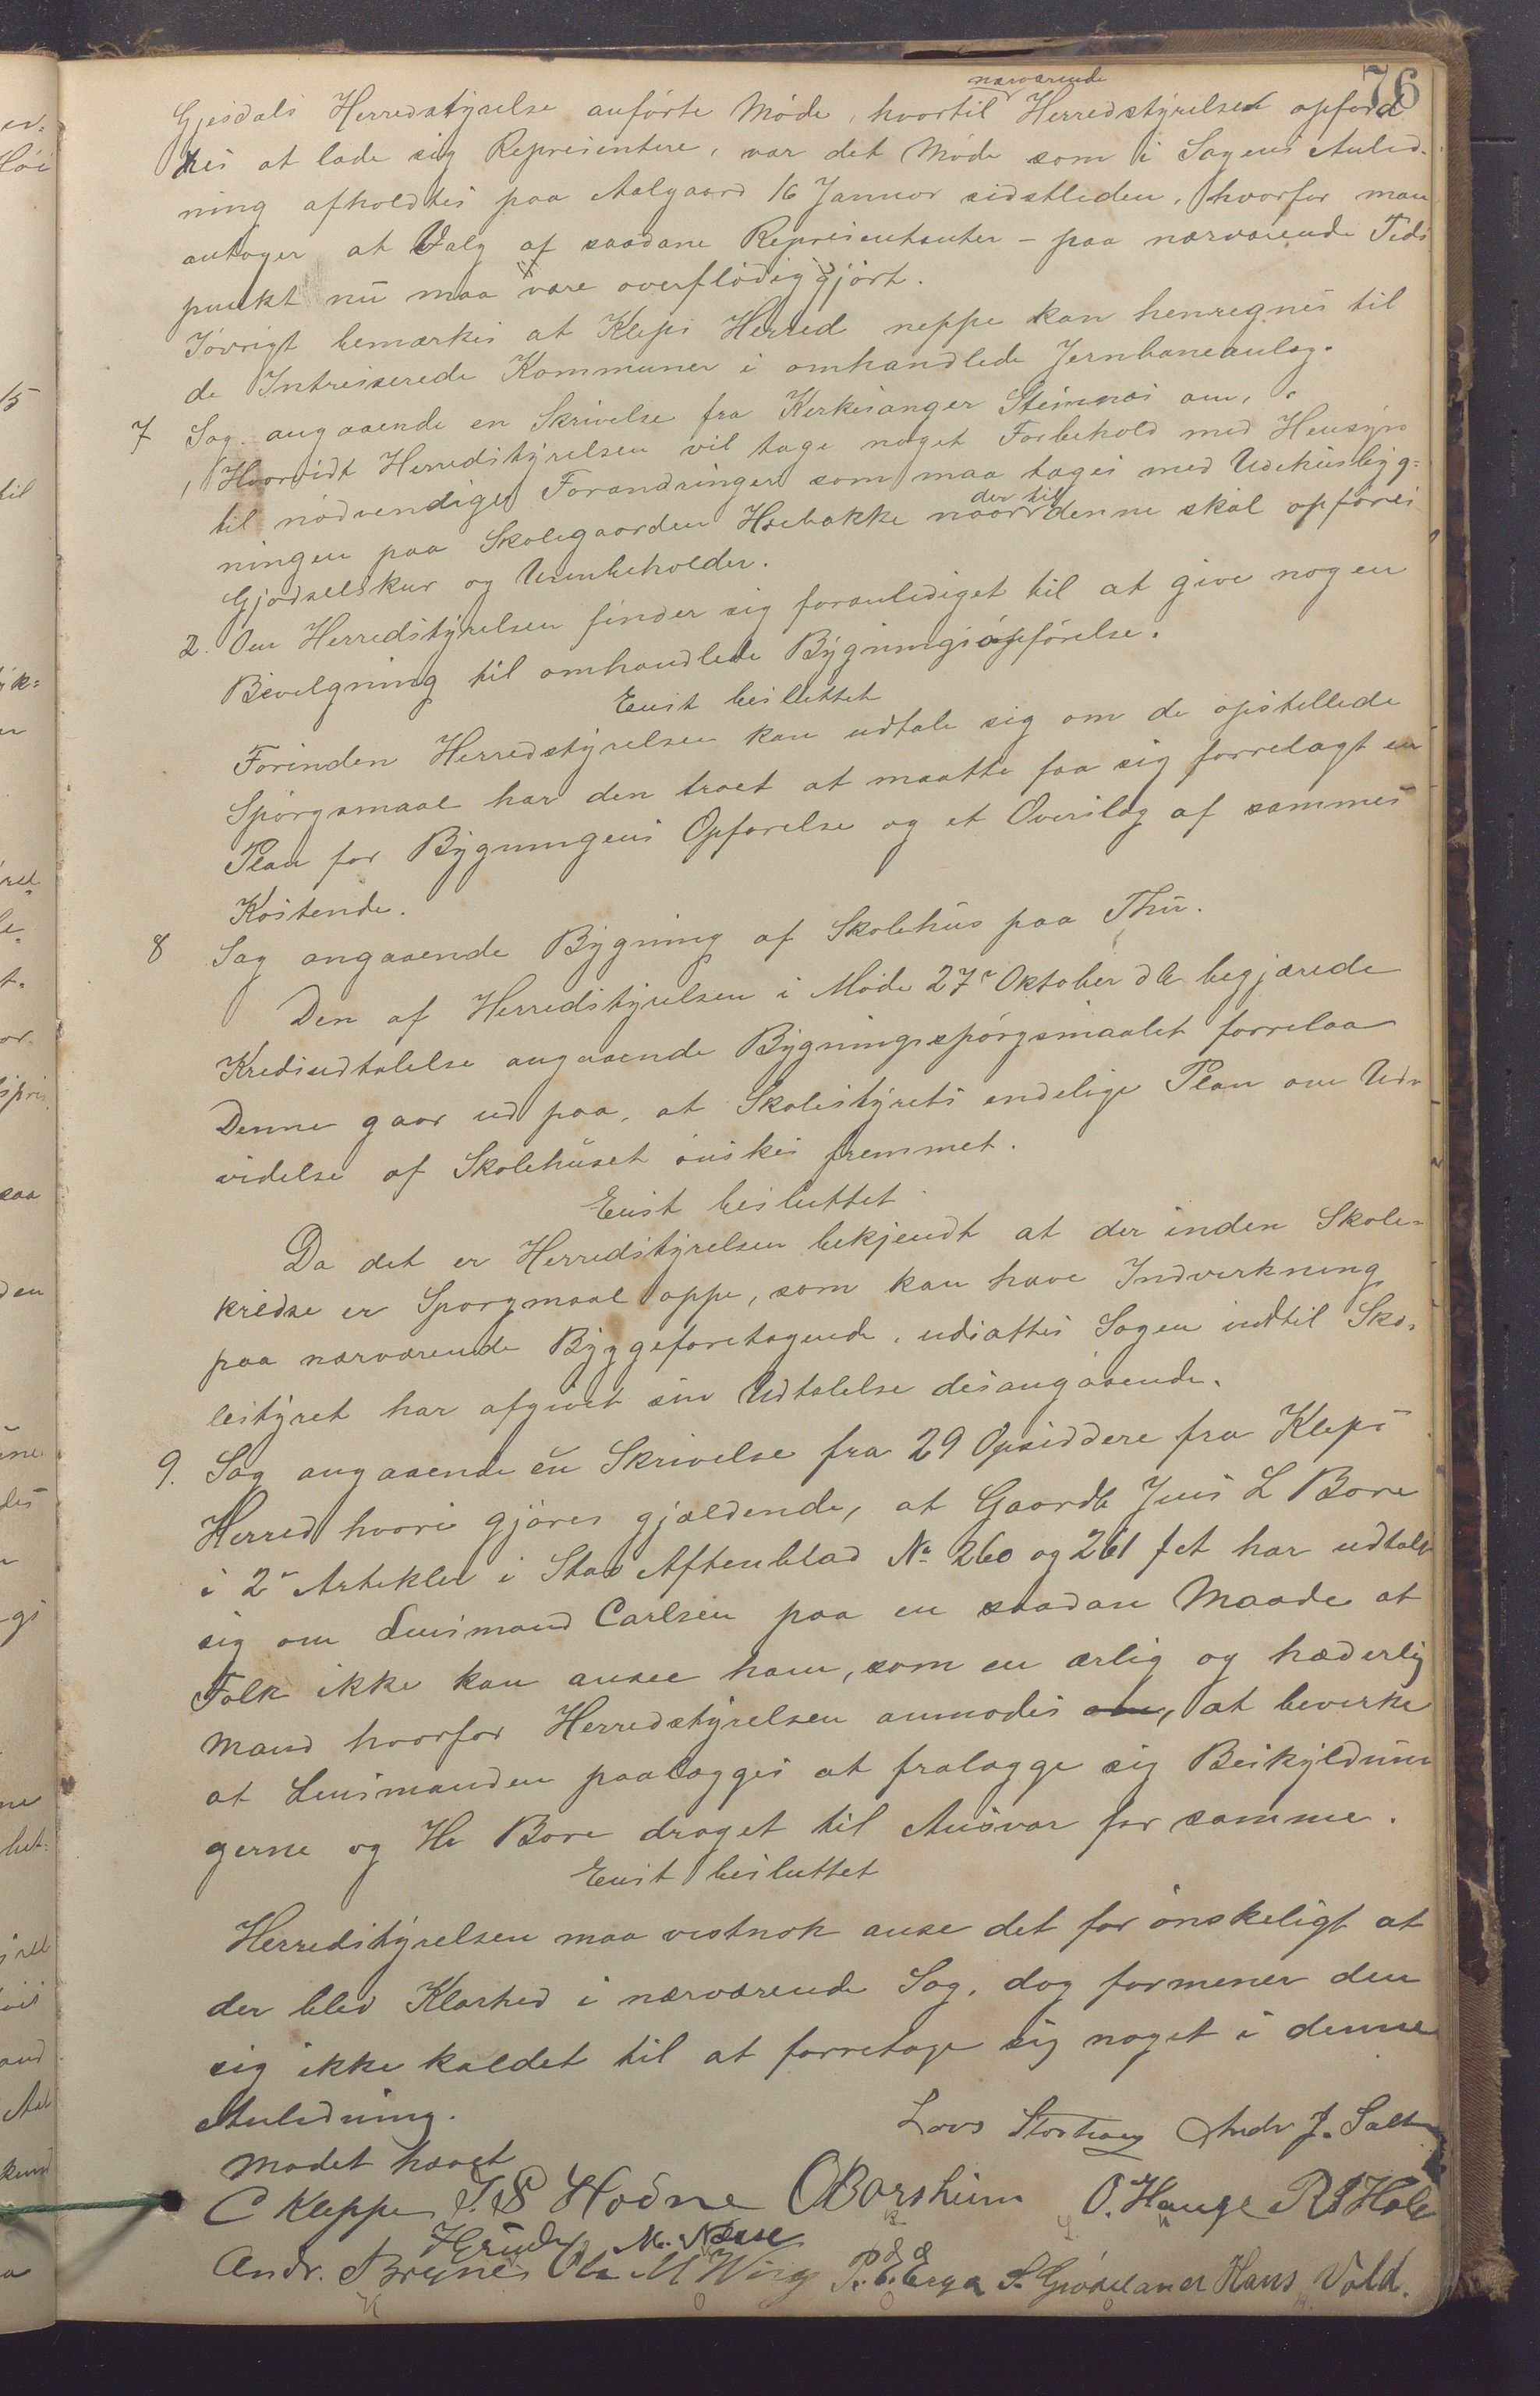 76
Gjesdals Herredstyrelse anførte Møde, hvortil nærværende Herredstyrelse opford
res at lade sig Representere, var det Møde som i Sagens Anled-
ning afholdtes paa Aalgaard 16 Januar sidstleden, hvorfor man
antager at Valg af saadane Representanter - paa nærværende Tids
punkt nu maa være overflødiggjørt.
Iøvrigt bemærkes at Kleps Herred neppe kan henregnes til
de Intreserede Kommuner i omhandlede Jernbaneanlæg.
7 Sag angaaende en Skrivelse fra Kirkesanger Steinnes om,
1 Hvorvidt Herredstyrelsen vil tage noget Forbehold med Hensyn
til nødvendige Forandringer som maa tages med Udehusbyg=
ningen paa Skolegaarden Hoebakke naar der til denne skal opføres
Gjødselskur og Urinbeholder.
2. Om Herredstyrelsen finder sig foranlediget til at give nogen
Bevilgning til omhandlede Bygningsopførelse.
Enst besluttet
Forinden Herredstyrelsen kan udtale sig om de opstellede
Spørgsmaal har den troet at maatte faa sig forrelagt en
Plan for Bygningens Opførelse og et Overslag af sammes
Kostende.
8 Sag angaaende Bygning af Skolehus paa Thu.
Den af Herredstyrelsen i Møde 27de Oktober d A begjærede
Kredsudtalelse angaaende Bygningsspørgsmaalet forrelaa
Denne gaar ud paa, at Skolestyrets endelige Plan om Ud-
videlse af Skolehuset ønskes fremmet.
Enst besluttet
Da det er Herredstyrelsen bekjendt at der inden Skole-
kredse er Sporgmaal oppe, som kan have Indverkning
paa nærværende Byggeforetagende, udsættes Sagen indtil Sko-
lestyret har afgivet sin Udtalelse desangaaende.
9. Sag angaaende en Skrivelse fra 29 Opsiddere fra Kleps
Herred hvori gjøres gjældende, at Gaardb Jens L Bore
i 2de Artikler i Stav Aftenblad No 260 og 261 f et har udtalt
sig om Lensmand Carlsen paa en saadan Maade at
Folk ikke kan ansee ham, som en ærlig og hæderlig
Mand hvorfor Herredstyrelsen anmodes om, at bevirke
at Lensmanden paalægges at fralægge sig Beskyldnin
gerne og Hr Bore draget til Ansvar for samme.
Enst besluttet
Herredstyrelsen maa vistnok anse det for ønskeligt at
der blev Klarhed i nærværende Sag, dog formener den
sig ikke kaldet til at forretage sig noget i denne
Anledning.
Mødet hævet
Lars Storhaug Andr J. Salte
C Kleppe T. S Hodne O Borsheim O. Hauge R S Hole
M. Næsse
Andr. Brynes Ole M Wiig P. E. Erga S. Grødeland Hans Vold.